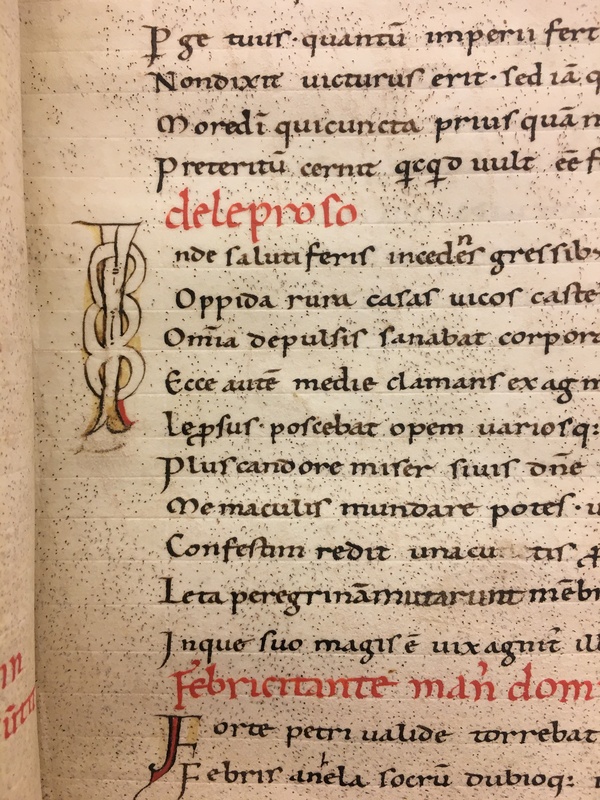 P ge tuus· quantū imperii fert
Nondixit uicturus erit· sed iā q
Moredī quicuncta prius quā n
Preteritū cernit qcqd uult eē f
deleproso
Inde salutiferis incedēs gressib;
Oppida rura casas uicos caste
Omīa depulsis sanabat corpora
Ecce autē medie clamans ex ag m
Lepsus· poscebat opem uariosq:
Pluscandore miser siuis dn̄e
Me maculis mundare potes· u
Confestim redit unacu tis
Leta peregrinā mutarunt mēbr
Inque suo magis ē uix agnit ill
Febricitante man dom
Forte petri ualide torrebat
Febris anela socrū dubioq: n
in